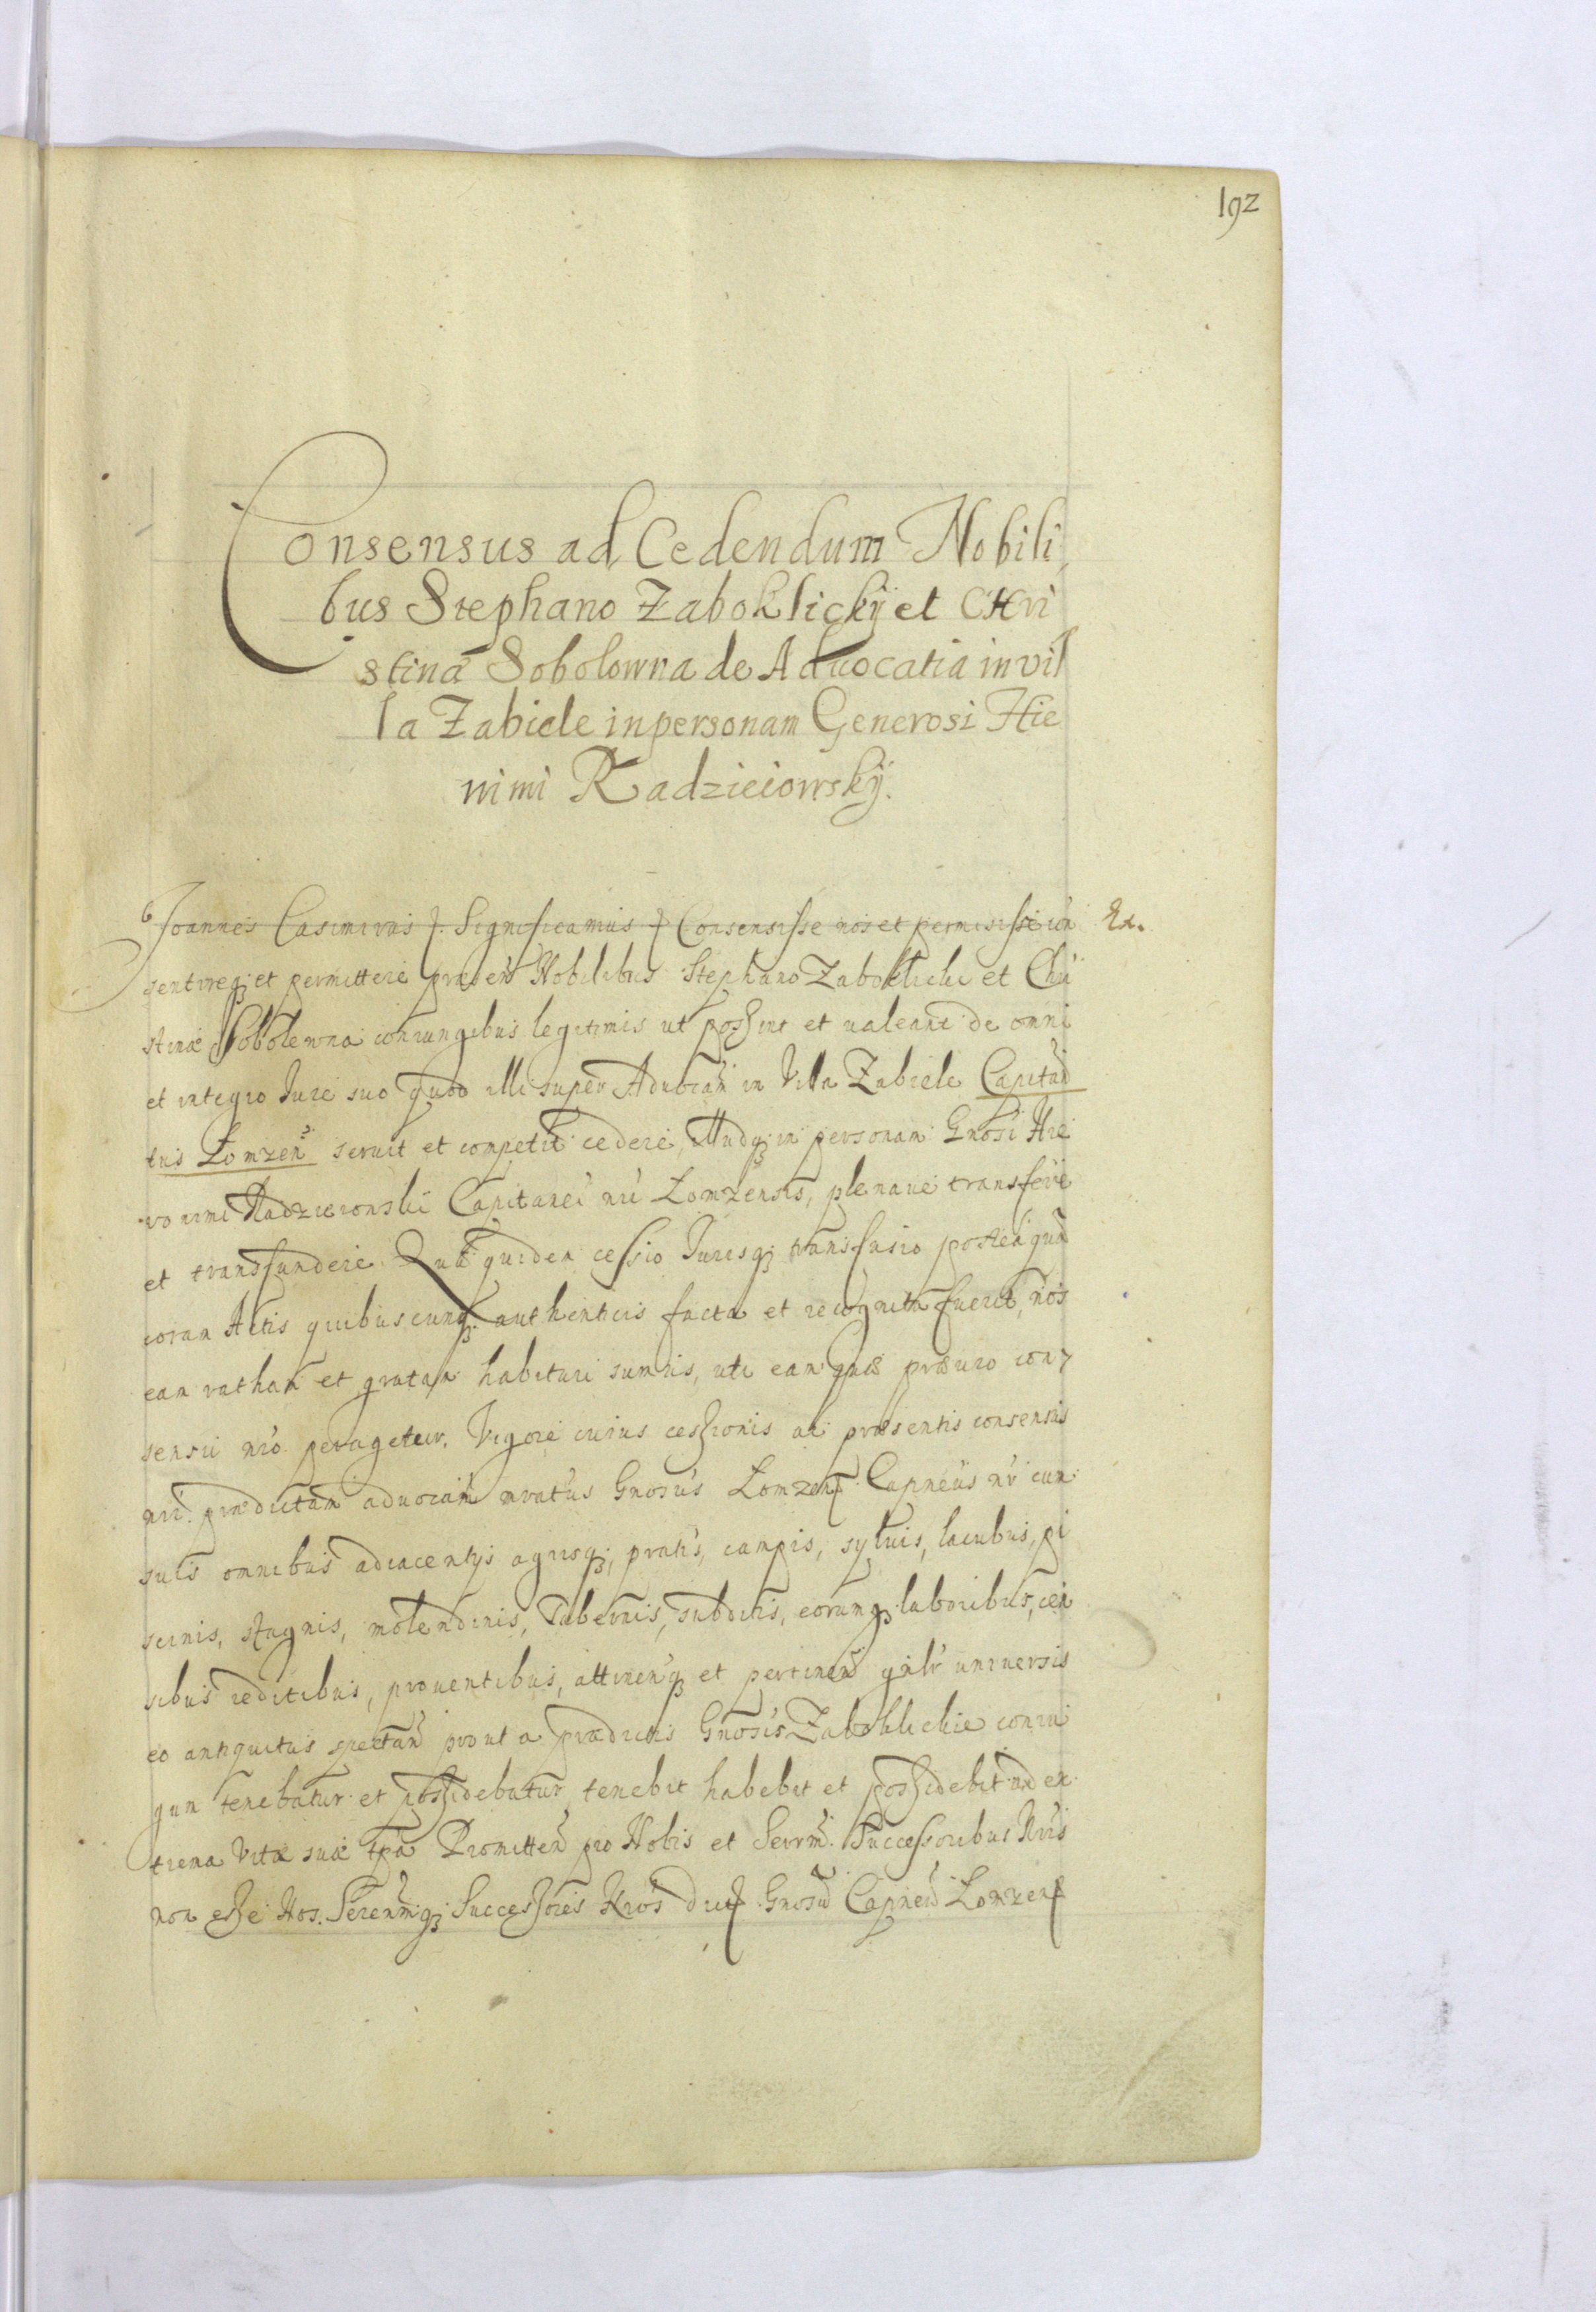 192
Consensus ad Cedendum Nobili
bus Stephano Zaboklickÿ et CHri
stinæ Sobolowna de Aduocatia in vil
la Zabiele in personam Generosi Hie
nimi Radzieiowskÿ.
Joannes Casimirus Significamus Consensisse nos et permisisse con
sentireq; et permittere præsen Nobilibus Stephano Zaboklicki et Chri
stinæ Sobolewna coniungibus legitimis ut possint et ualeant de omni
et integro Jure suo quod illi super Aduocãm in Villa Zabiele Capitãð
tus Lomzeñ seruit et competit cedere, Illudq; in personam Gnosi Hie
ronimi Radzieionski Capitanei nri Lomzensis, plenaue transferre
et transfundere. Quæ quidem cessio Jurisq; transfusio postea quã
coram Actis quibuscunq; authenticis facta et recognita fuerit, nos
eam ratham et gratam habituri sumus, uti eam quæ præuio con
sensu nro peragetur. Vigore cuius cessionis ac præsentis consensus
nri. prædictam aduocãm mratus Gnosus Lomzen Capneus nr cum
suis omnibus adiacentijs agrisq; pratis, campis, syluis, lacubus, pi
scinis, stagnis, molendinis, Tabernis, subditis, eorumq; laboribus, cen
sibus reditibus, prouentibus, attinenq; et pertinen gnlr uniuersis
eo antiquitus spectan prout a prædictis Gnosis Zaboklickie coniu
gum tenebatur et possidebatur tenebit habebit et possidebit ad ex
trema Vitæ suæ tpa Promitten pro Nobis et Serrm. Successoribus Nris
non esse Nos. Serenmq; Successores Nros dict Gnosu Capneu Lomzen
Rx.